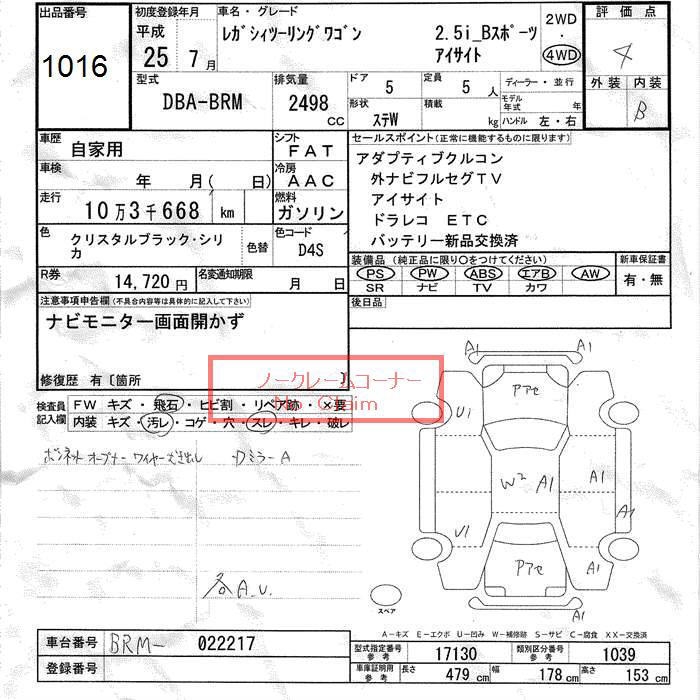 出品番号
1016
初度登録年月
平成
25 7月
車名・グレード
レガシィツーリングワゴン 2.5i_Bスポーツ
アイサイト
2WD
・
4WD
評価点
4
外装 内装
B
型式
DBA-BRM
排気量
2498
CC
ドア 5
定員 5 人
ディーラー・並行
形状 ステW
積載 kg
モデル年式 年
ハンドル 左・右
車歴
自家用
シフト
FAT
車検
年 月( 日)
冷房
AAC
走行
10万3千668 km
燃料
ガソリン
色
クリスタルブラック・シリカ
色替
色コード
D4S
R券
14,720 円
名変通知期限
月 日
セールスポイント(正常に機能するものに限ります)
アダプティブクルコン
外ナビフルセグTV
アイサイト
ドラレコ ETC
バッテリー新品交換済
装備品(純正品に限り○をつけてください)
PS PW ABS エアB AW
SR ナビ TV カワ
新車保証書
有・無
後日品
注意事項申告欄(不具合内容等は具体的に記入して下さい)
ナビモニター画面開かず
修復歴 有〔箇所 〕
ノークレームコーナー
No Claim
検査員記入欄
FW キズ・飛石・ヒビ割・リペア跡・×要
内装 キズ・汚レ・コゲ・穴・スレ・キレ・破レ
ボンネットオープナー ワイヤー突き出し Dミラー A
各A.U.
A1 A1
Pアセ
U1
W2 A1 A1
A1
U1
Pアセ A1
A1
スペア
A-キズ E-エクボ U-凹み W-補修跡 S-サビ C-腐食 XX-交換済
車台番号 BRM- 022217
登録番号
型式指定番号 参考 17130
類別区分番号 参考 1039
車庫証明用 参考 長さ 479 cm 幅 178 cm 高さ 153 cm